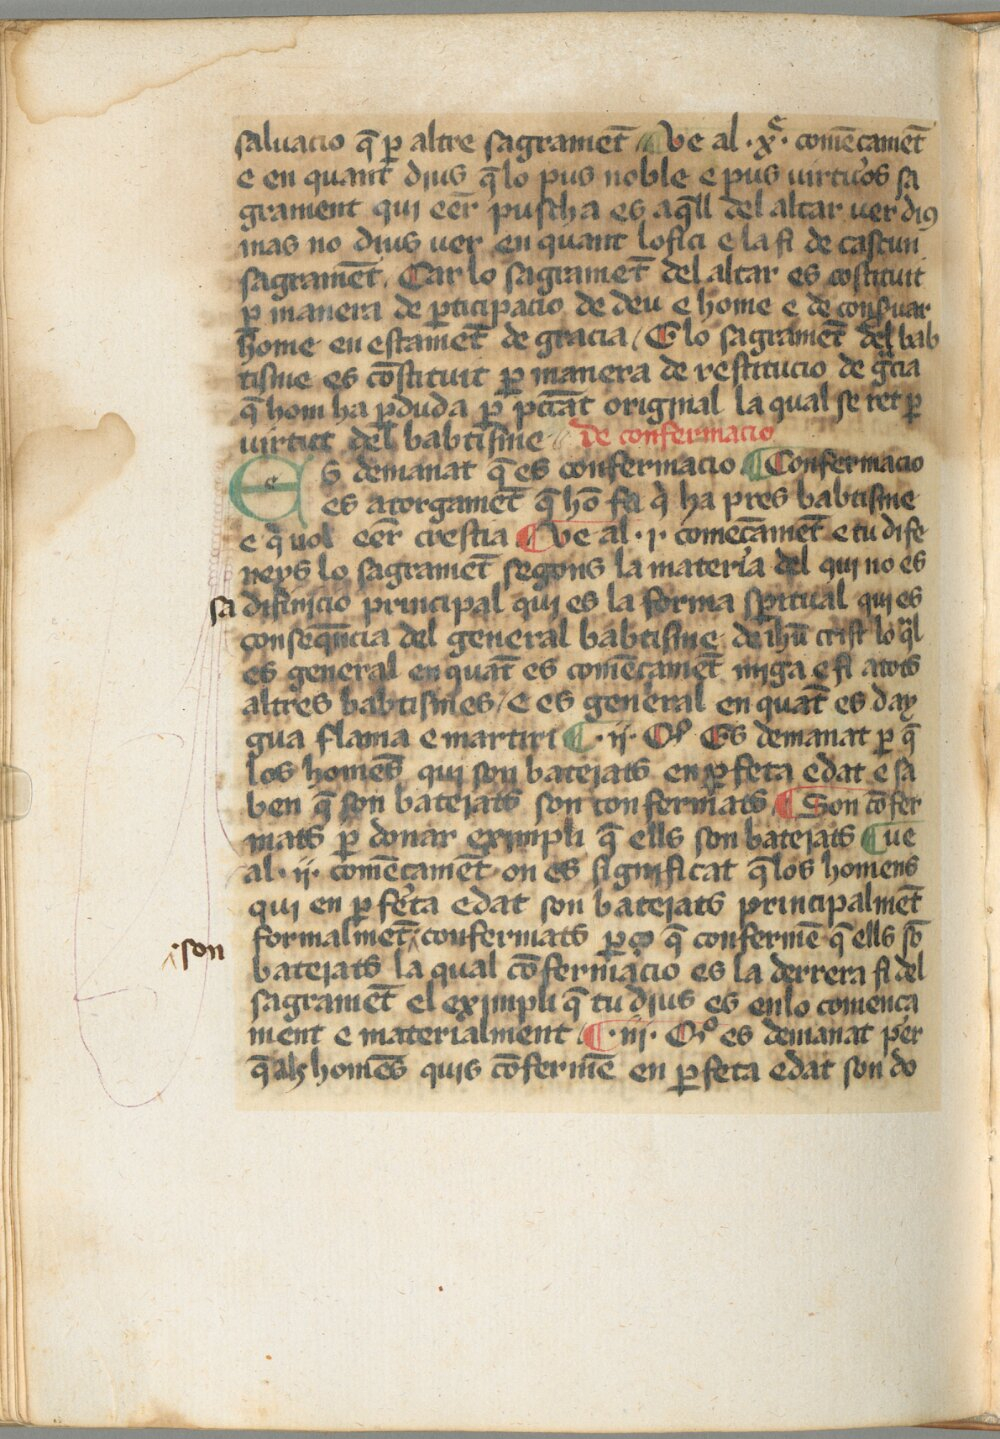 saluacio q̄ ꝑ altre sagramēt ¶ Ve al ·xͤ· comēcamēt
e en quant dius q̄ lo pus noble e pus uirtuos sa
grament qui eēr puscha es aq̄ll del altar uer diꝯ
mas no dius uer en quant lofici e la fi de cascun
sagramēt. Car lo sagramēt del altar es costituit
ꝑ manera de ꝑticipacio de deu e home e de conẜuar
home en estamēt de gracia / E lo sagramēt del bab
tisme es cōstituit ꝑ manera de restitucio de gͣcia
q̄ hom ha ꝑduda ꝑ pccāt original la qual se ret ꝑ
uirtut del babtisme de confermacio
ES demanat q̄ es confermacio ¶ Confermacio
es atorgamēt q̄ hō fa q̇ ha pres babtisme
e q̇ uol eēr crestia ¶ Ve al ·i· comēcamēt e tu dife
neys lo sagramēt segons la materia del qui no es
sa difinicio principal qui es la forma sp̄itual qui es
conseq̄ncia del general babtisme de ih̄u crist lo q̄l
es general en quāt es comēcamēt miga e fi a tots
altres babtismes / e es general en quāt es day
gua flama e martiri ¶ ·ii· Qͦ Es demanat ꝑ q̄
los homēs qui son batejats en ꝑfeta edat e sa
ben q̄ son batejats son confermats ¶ Son cōfer
mats ꝑ donar eximpli q̄ ells son batejats ¶ Ve
al ·ii· comēcamēt on es significat q̄ los homens
qui en ꝑfeta edat son batejats principalmēt
formalmēt confermats ꝑço q̄ confermē q̄ ells sō
·son
batejats la qual cōfermacio es la derrera fi del
sagramēt el eximpli q̄ tu dius es en lo comenca
ment e materialment ¶ ·iii· Qͦ es demanat per
q̄ als homēs quis cōfermē en ꝑfeta edat son do